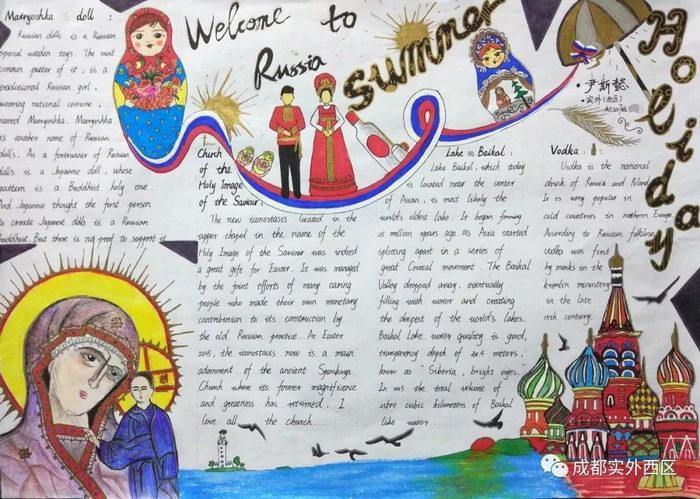 Welcome to
Russia
Summer
Holiday
Matryoshka doll :
Russian dolls is a Russian
special wooden toys. The most
common pattern of it , is a
traditional Russian girl ,
wearing national costume ,
named Matryoshka. Matryoshka
is another name of Russian
dolls. As a forerunner of Russian
dolls is a Japanese doll, whose
pattern is a Buddhist holy one.
And Japanese thought the first person
to create Japanese dolls is a Russian
Buddhist. But there is no proof to support it
Church
of the
Holy Image
of the Saviour:
The new iconostasis located in the
upper chapel in the name of the
Holy Image of the Saviour was indeed
a great gift for Easter. It was managed
by the joint efforts of many caring
people who made their own monetary
contribution to its construction by
the old Russian practice. At Easter
2015, the iconostasis now is a main
adornment of the ancient Spasskaya
Church where its former magnificence
and greatness has returned. I
love all the church.
Lake Baikal :
Lake Baikal, which today
is located near the center
of Asian, is most likely the
world's oldest lake. It began forming
25 million years ago as Asia started
splitting apart in a series of
great Crustal movement. The Baikal
Valley dropped away, eventually
filling with water and creating
the deepest of the world's lakes.
Baikal Lake water quality is good,
transparency depth of 40.5 meters,
know as "Siberia, bright eyes.
In the total volume of
cubic kilometers of Baikal
lake water
Vodka :
Vodka is the national
drink of Russia and Poland
It is very popular in
cold countries in northern Europe
According to Russian folklore,
vodka was first
by monks in the
kremlin monastery
in the late
15th century.
尹斯懿
实外(西区)
成都实外西区